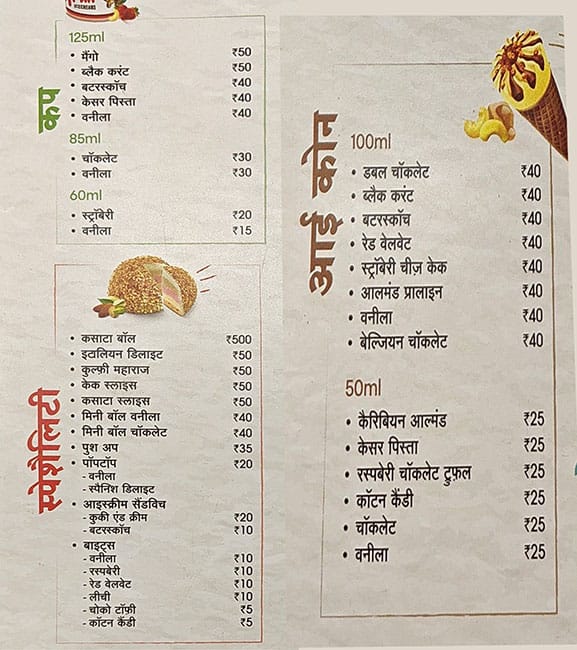 कप
125ml
• मैंगो ₹50
• ब्लैक करंट ₹50
• बटरस्कॉच ₹40
• केसर पिस्ता ₹40
• वनीला ₹40
85ml
• चॉकलेट ₹30
• वनीला ₹30
60ml
• स्ट्रॉबेरी ₹20
• वनीला ₹15
स्पेश्लिटी
• कसाटा बॉल ₹500
• इटालियन डिलाइट ₹50
• कुल्फ़ी महाराज ₹50
• केक स्लाइस ₹50
• कसाटा स्लाइस ₹50
• मिनी बॉल वनीला ₹40
• मिनी बॉल चॉकलेट ₹40
• पुश अप ₹35
• पॉपटॉप ₹20
- वनीला
- स्पैनिश डिलाइट
• आइस्क्रीम सैंडविच
- कुकी एंड क्रीम ₹20
- बटरस्कॉच ₹10
• बाइट्स
- वनीला ₹10
- रस्पबेरी ₹10
- रेड वेलवेट ₹10
- लीची ₹10
- चोको टॉफ़ी ₹5
- कॉटन कैंडी ₹5
आई कोन
100ml
• डबल चॉकलेट ₹40
• ब्लैक करंट ₹40
• बटरस्कॉच ₹40
• रेड वेलवेट ₹40
• स्ट्रॉबेरी चीज़ केक ₹40
• आलमंड प्रालाइन ₹40
• वनीला ₹40
• बेल्जियन चॉकलेट ₹40
50ml
• कैरिबियन आल्मंड ₹25
• केसर पिस्ता ₹25
• रस्पबेरी चॉकलेट ट्रुफ़ल ₹25
• कॉटन कैंडी ₹25
• चॉकलेट ₹25
• वनीला ₹25